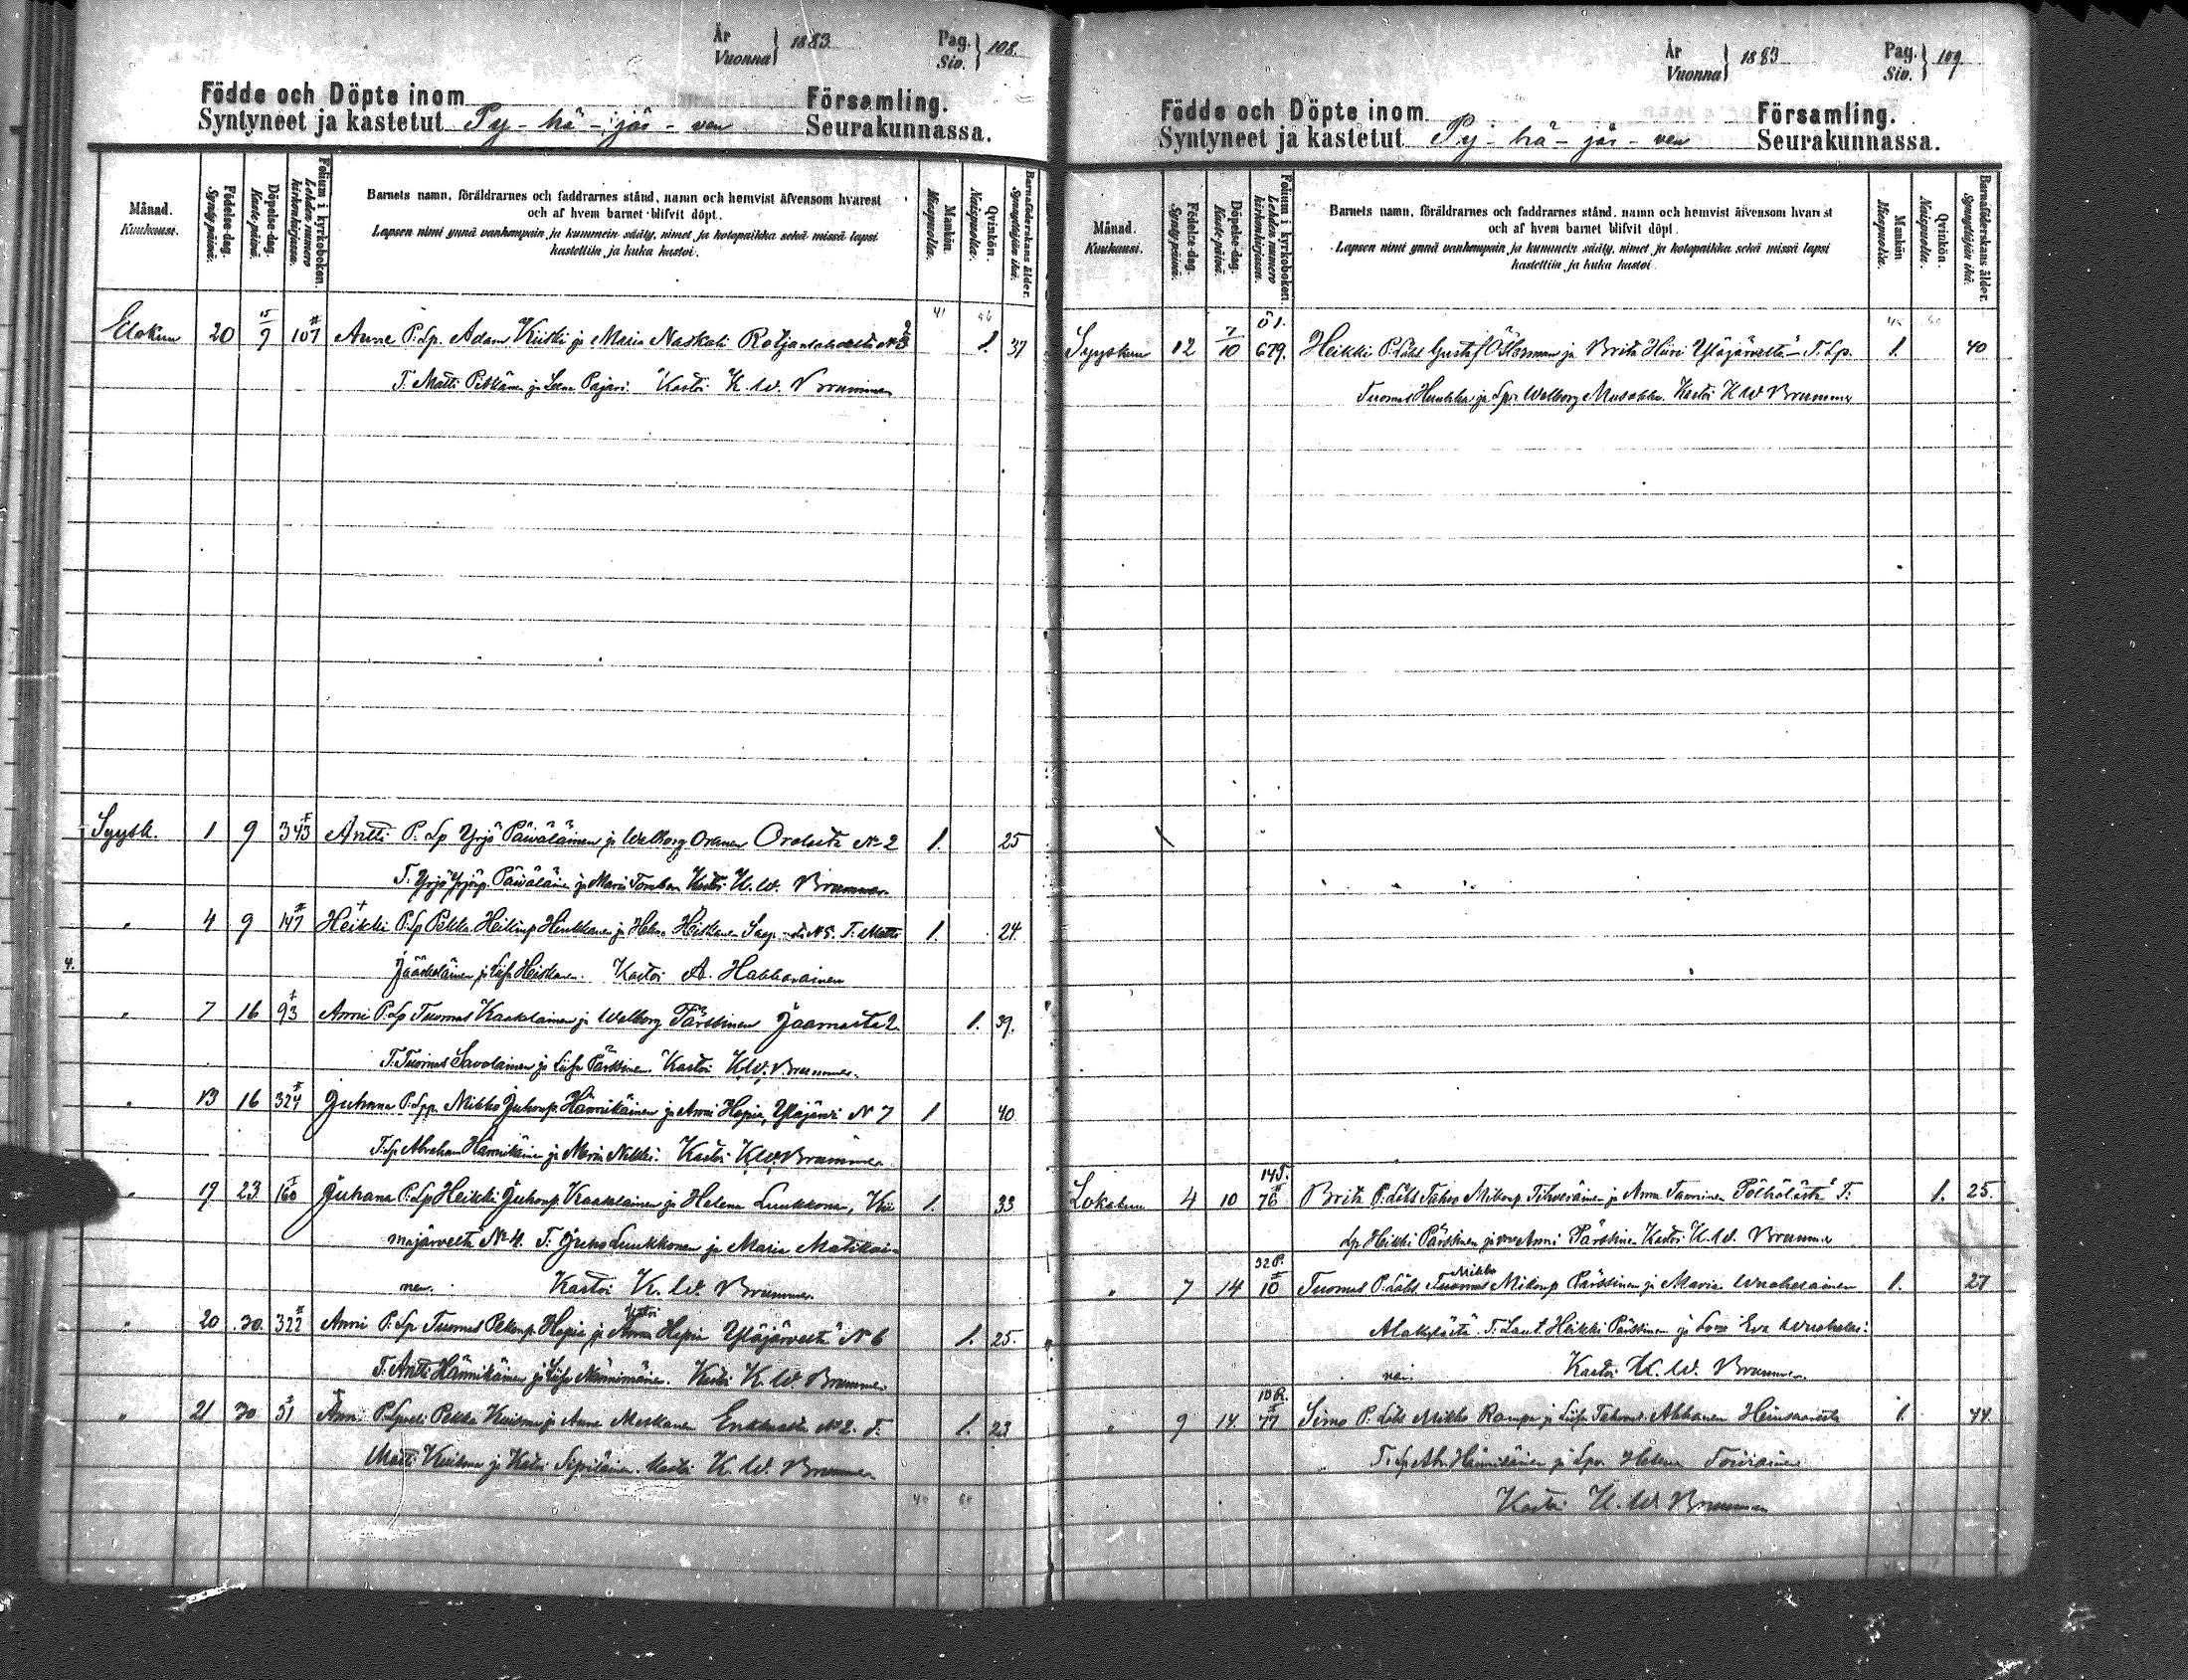 År
Vuonna } 1883.
Pag.
Siv. } 108.
Födde och Döpte inom Församling.
Syntyneet ja kastetut Py-hä-jär-ven Seurakunnassa.
Månad.
Kuukausi.
Födelse-dag.
Syntypäivä.
Döpelse-dag.
Kaste-päivä.
Folium i kyrkoboken.
Lehden numero kirkonkirjassa.
Barnets namn, föräldrarnes och faddrarnes stånd, namn och hemvist äfvensom hvarest
och af hvem barnet blifvit döpt.
Lapsen nimi ynnä vanhempain ja kummein sääty, nimet ja kotopaikka sekä missä lapsi
kastettiin ja kuka kastoi.
Mankön.
Miespuolia.
Qvinkön.
Naispuolia.
Barnaföderskans ålder.
Synnyttäjän ikä.
Elokuu 20 15/9 107 Anna P. Lp. Adam Kiiski ja Maria Naskali 1. 37
T. Matti Pitkänen ja Leena Pajari. Kastoi K. W. Brummer
Syysk. 1 9 343 Antti P. Lp Yrjö Päiväläinen ja Walborg Oranen № 2 1. 25
T. Yrjö Yrjönp. Päiväläinen ja Maria Kastoi K. W. Brummer.
" 4 9 147 Heikki P. Lp Pekka Heikinp. Hinkkanen ja Helena Heiskanen N 5. T. Matti 1. 24.
4.
Jääskeläinen ja Liisa Heiskanen. Kastoi A. Hakkarainen
" 7 16 93 Anni P. Lp Tuomas Kaakelainen ja Walborg Pärssinen Jaamasta 2. 1. 39.
T. Tuomas Savolainen ja Liisa Pärssinen. Kastoi K. W. Brummer.
" 13 16 324 Juhana P. Mikko Juhonp. Hännikäinen ja Anni Hopia, Yläjärvi N 7 1 40
T. Lp Abraham Hännikäinen ja Maria Kastoi K. W. Brummer
" 19 23 160 Juhana P. Lp Heikki Juhonp. Kaakelainen ja Helena Luukkonen, Kii- 1. 33
majärveltä № 4. T. Juho Luukkonen ja Maria Matikai-
nen. Kastoi K. W. Brummer.
" 20 30. 322 Anni P. Lp Tuomas Pekanp. Hopia ja Hopia Yläjärveltä N 6 1. 25.
T. Antti Hännikäinen ja Liisa Kastoi K. W. Brummer
" 21 30 51 P. Pekka Kuisma ja Anna № 2. T. 1. 23
Matti Kuisma ja Katri Kastoi K. W. Brummer
40 60
År
Vuonna } 1883
Pag.
Siv. } 109.
Födde och Döpte inom Församling.
Syntyneet ja kastetut Py-hä-jär-ven Seurakunnassa.
Månad.
Kuukausi.
Födelse-dag.
Syntypäivä.
Döpelse-dag.
Kaste-päivä.
Folium i kyrkoboken.
Lehden numero kirkonkirjassa.
Barnets namn, föräldrarnes och faddrarnes stånd, namn och hemvist äfvensom hvarest
och af hvem barnet blifvit döpt.
Lapsen nimi ynnä vanhempain ja kummein sääty, nimet ja kotopaikka sekä missä lapsi
kastettiin ja kuka kastoi.
Mankön
Miespuolia.
Qvinkön.
Naispuolia.
Barnaföderskans ålder.
Synnyttäjän ikä.
Syyskuu 12 7/10 679. Heikki P. Gustaf Österman ja Brita Hiiri Yläjärveltä – T. Lp. 1. 40
Tuomas ja Walborg Kastoi K W Brummer
14 T.
Lokakuu 4 10 76 Brita P. Mikonp. ja Anna Pölhölästä T. 1. 25.
Lp Heikki Pärssinen ja Anni Pärssinen Kastoi K. W. Brummer
32 P.
Mikko
" 7 14 10 Tuomas P. Tuomas Mikonp Pärssinen ja Maria 1. 27
Alakylästä. T. Heikki Pärssinen ja Eva
Kastoi K. W. Brummer.
10 R.
" 9 14 77 Simo P. Mikko Rampa ja Liisa Ahkanen 1. 44.
T. Lp Abr. Hännikäinen ja Helena Toiviainen
Kastoi K. W. Brummer